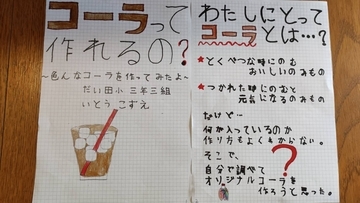 コーラって
作れるの？
～色んなコーラを作ってみたよ～
だい田小 三年三組
いとう こずえ
わたしにとって
コーラとは…？
★とくべつな時にのむ
おいしいのみもの
★つかれた時にのむと
元気になるのみもの
だけど…
何が入っているのか
作り方もよくわからない。
そこで、
自分で調べて
オリジナルコーラを
作ろうと思った。
？